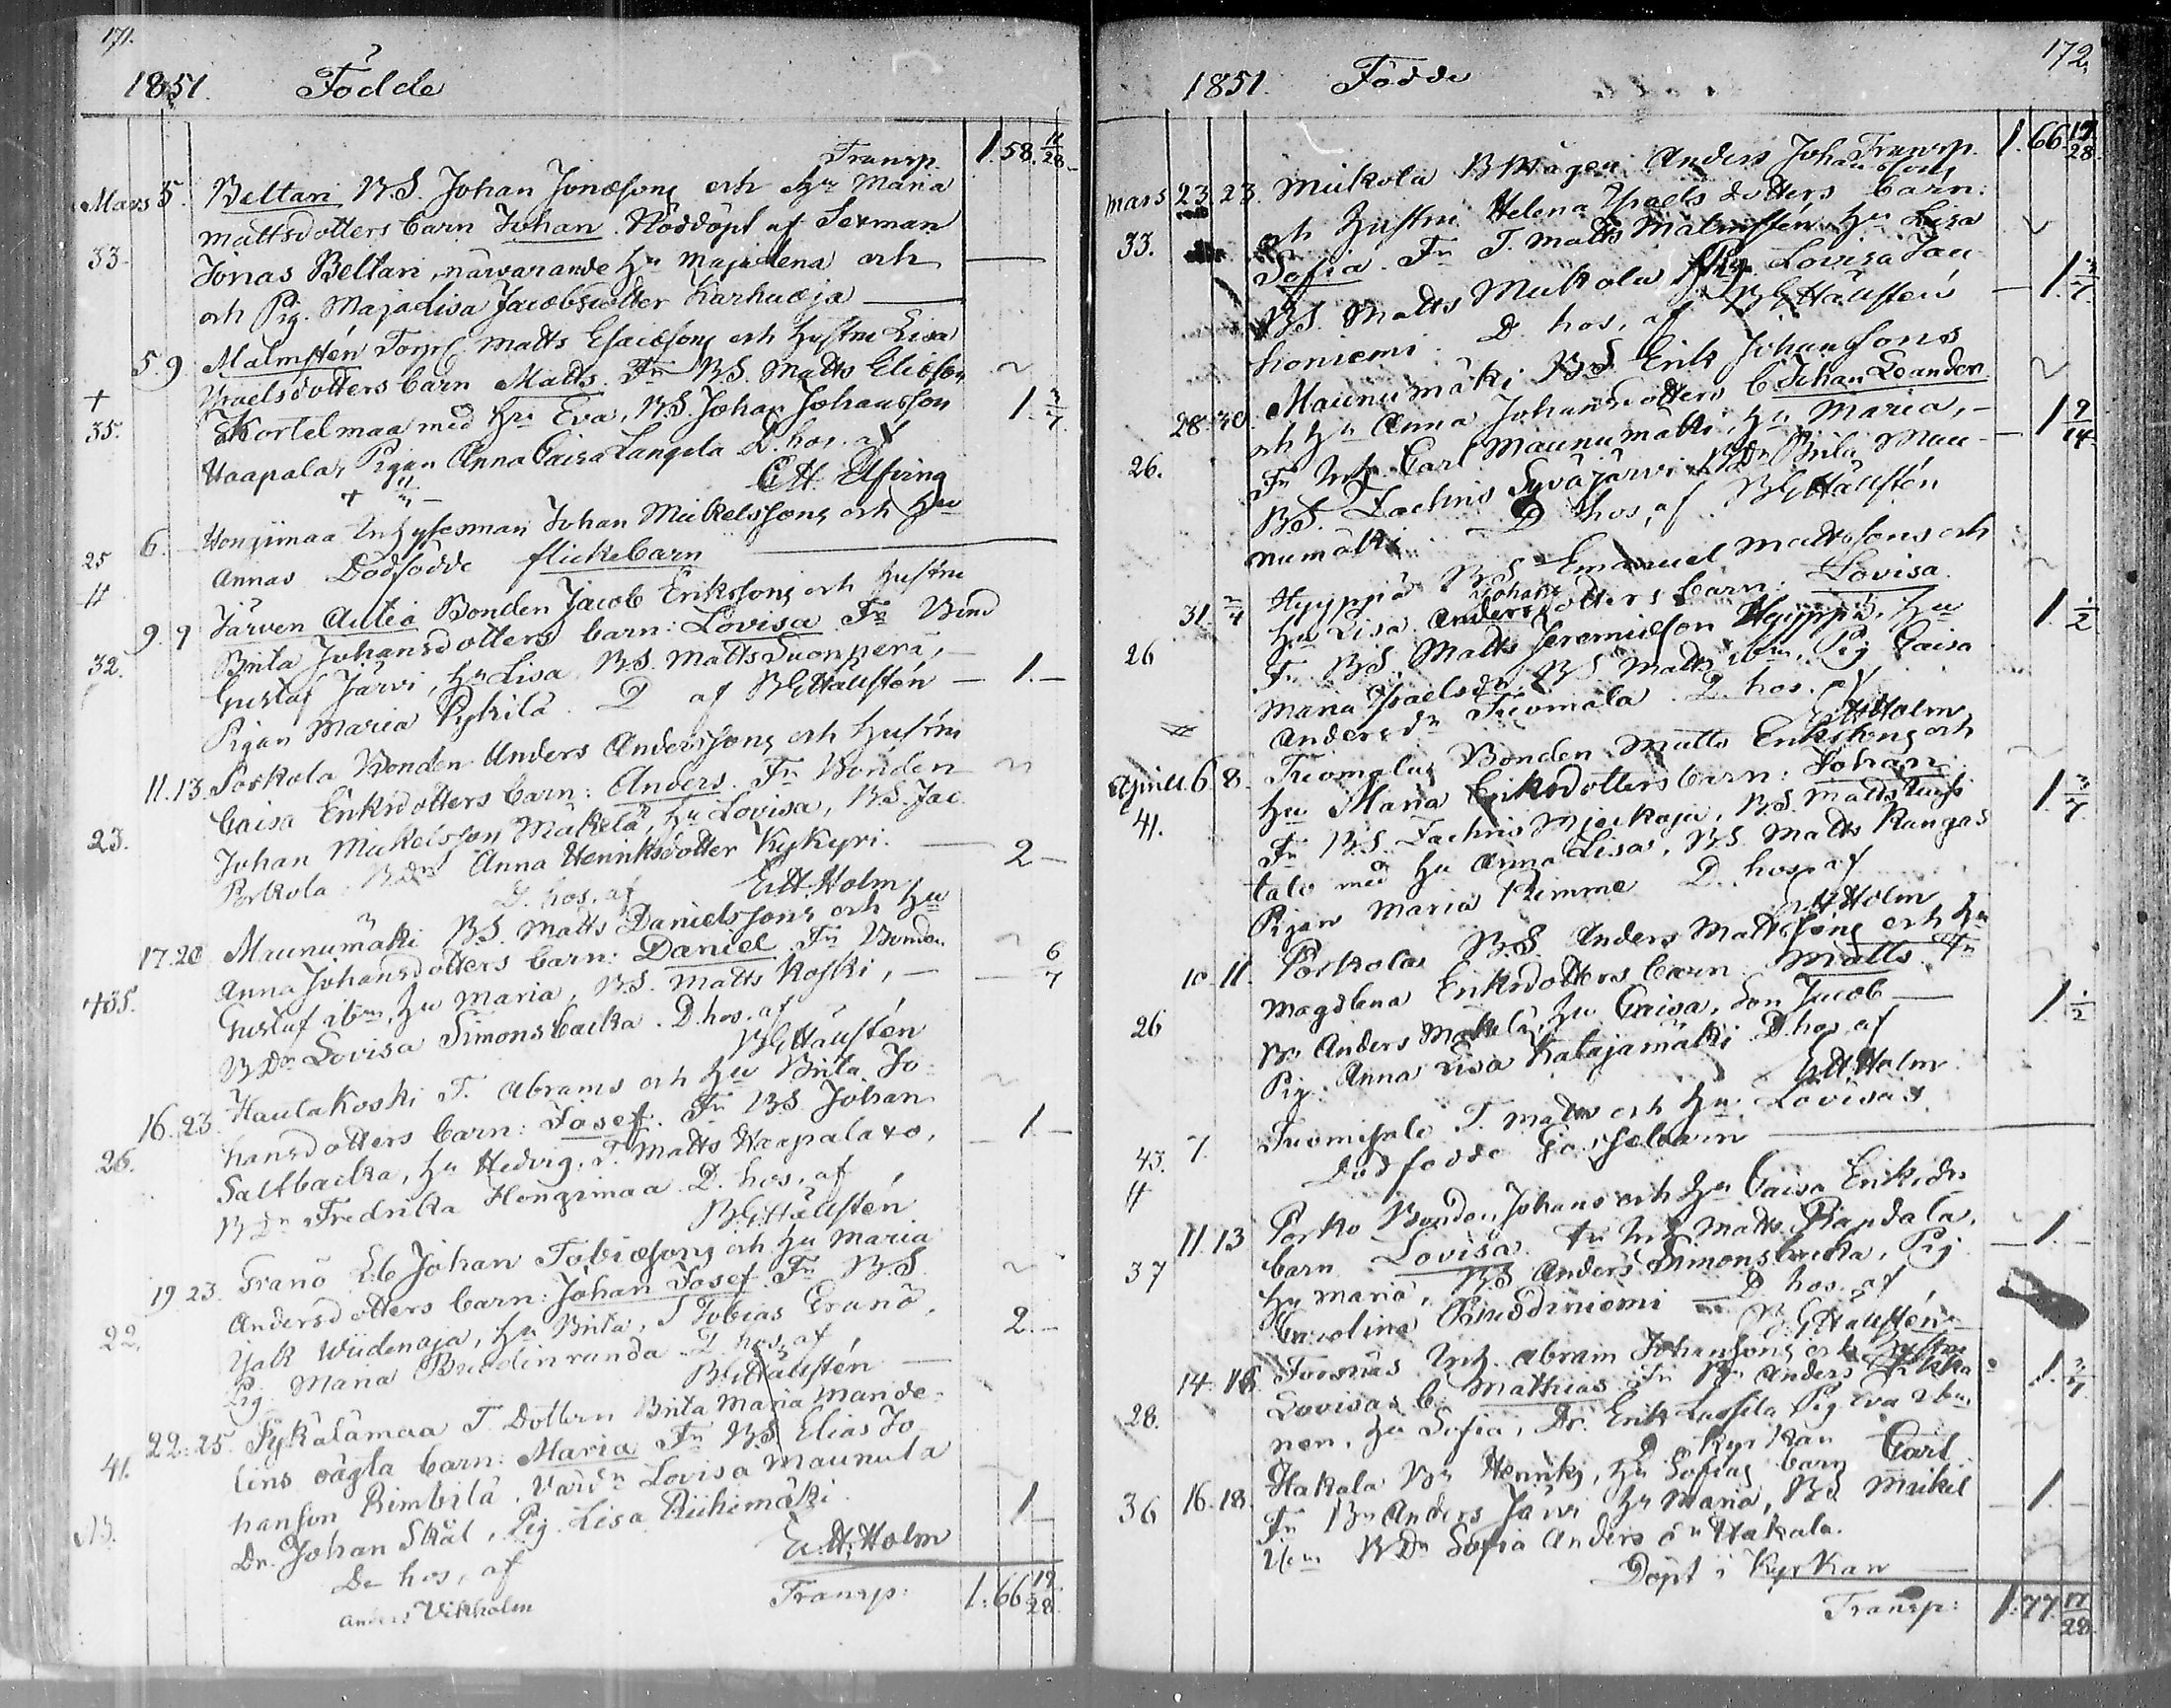 171.
1851. Födde
Transp. 1. 58. 11/28
Mars 5. Beltari B.S. Johan Jonæsons och Hu Maria
Mattsdotters barn Johan. Nöddöpt af Sexman
33. Jonas Beltari, närvarande Hu Maja Lena och
och Pig. Maja Lisa Jacobsdotter Karhuoja
5 9 Malmstén Torp. Matts Esaiæsons och Hustru Lisa
+ Ysraelsdotters barn Matts. Fn B.S. Matts Eliæson
35. Kortelmaa med Hu Eva, B.S. Johan Johansson 1. 3/7
Haapala, Pigan Anna Caisa Langela D. hos. af
E.H. Elfving
6. Hongimaa Inhysesman Johan Mickelssons och Hu
25 Annas Dödfödde flickebarn
9. 9 Järven Autio Bonden Jacob Erikssons och Hustru
32. Brita Johansdotters barn: Lovisa. Fn Bond
Gustaf Järvi, Hu Lisa B.S. Matts Suonperä,
Pigan Maria Pykilä. D af B G Hällstén 1.
11. 13. Porkola Bonden Anders Anderssons och Hustru
Caisa Eriksdotters barn: Anders. Fn Bonden
23. Johan Mickelsson Mäkelä, Hu Lovisa, B.S. Jac.
Porkola. Anna Henriksdotter Kykyri. 2
D. hos. af E.H. Holm
17. 20 Maunumäki B.S. Matts Danielssons och Hu
Anna Johansdotters barn: Daniel Fn Bonden
+35. Gustaf ibm, Hu Maria, B.S. Matts Koski, 6/7
B.Dr Lovisa Simonsbacka. D. hos. af
B G Hällstén
16. 23. Haulakoski T. Abrams och Hu Brita Jo-
hansdotters barn: Josef. Fn B.S. Johan
26. Saltbacka, Hu Hedvig. T. Matts Haapalaxo, 1.
B Dr Fredrika Hongimaa D. hos. af
B G Hällstén
19. 23. Granö Johan Tobiæsons och Hu Maria
Andersdotters barn: Johan Josef. Fn B.S.
22. Isak Wiidenoja, Hu Brita, Tobias Granö, 2.
Pig. Maria D. hos, af
B G Hällstén
22. 25. Pykälämaa T. Dottern Brita Maria Mande-
41. lins oägta barn: Maria Fn B.S. Elias Jo
hanson Rimbilä, Lovisa Maunula
Dr. Johan Skäl, Pig. Lisa Riihimäki. 1
D. hos, af E.H. Holm
Anders Vikholm
Transp: 1: 66 19/28
172.
1851. Födde
Transp. 1. 66. 19/28
Mars 23. 23. Mickola B Mågen Anders Johansons
och Hustru Helena Ysraelsdotters barn:
33. Sofia. Fn T. Matts Malmstén Hu Lisa
B.S. Matts Mickola Pig. Lovisa Jau 1. 3/7
honiemi. D. hos, af B G Hällstén
28. 30. Maunumäki B.S. Erik Johansons
och Hu Anna Johansdotters b. Johan Leander
26. Fn Inh. Carl Maunumäki, Hu Maria, 1 9/14
B.S. Zachris Syväjärvi B Dr Brita Mau
numäki D hos, af B G Hällstén
31. 2/4 Hyyppä B.S. Emanuel Mattssons och
Hu Lisa Johansdotters barn: Lovisa
26 Fn B.S. Matts Jeremiæson Hyyppä, Hu 1. 1/2
Maria Ysraelsdr. B.S. Matts ibm, Pig Caisa
Andersdr Tuomala D. hos. af
E.H. Holm
April 6 8. Tuomalas Bonden Matts Erikssons och
Hu Maria Eriksdotters barn: Johan
41. Fn B.S. Zachris Myrkoja, B.S. Matts Uusi 1. 3/7
talo med Hu Anna Lisa, B.S. Matts Kangas
Pigan Maria Rimme D. hos. af
E.H. Holm
10. 11. Porkolas B.S. Anders Mattssons och Hu
Magdlena Eriksdotters barn Matts. Fn
26 Bn Anders Mäkelä, Hu Caisa, Son Jacob 1. 1/2
Pig. Anna Lisa Katajamäki D. hos. af
E.H. Holm
7. Tuomisalo T. Matts och Hu Lovisas
43. Dödfödde Gossebarn
11. 13 Porko Bonden Johans och Hu Caisa Eriksdrs
barn Lovisa Fn Inh. Matts Riandala, 1.
37 Hu Maria, B.S. Anders Simonsbacka, Pig
Carolina D. hos. af
B G Hällstén
14. 16 Forsnäs Inh. Abram Johansons och Hustru
28. Lovisas b. Mathias Fn Bn Anders 1. 3/7
nen, Hu Sofia, Dr. Erik Lassila Pig Eva ibm.
D. i Kyrkan
36 16. 18. Hakala Bn Henriks, Hu Sofias barn Carl
Fn Bn Anders Järvi Hu Maria, B.S. Mickel 1.
ibm B Dr Sofia Andersdr Hakala.
Döpt i Kyrkan
Transp: 1: 77 17/28